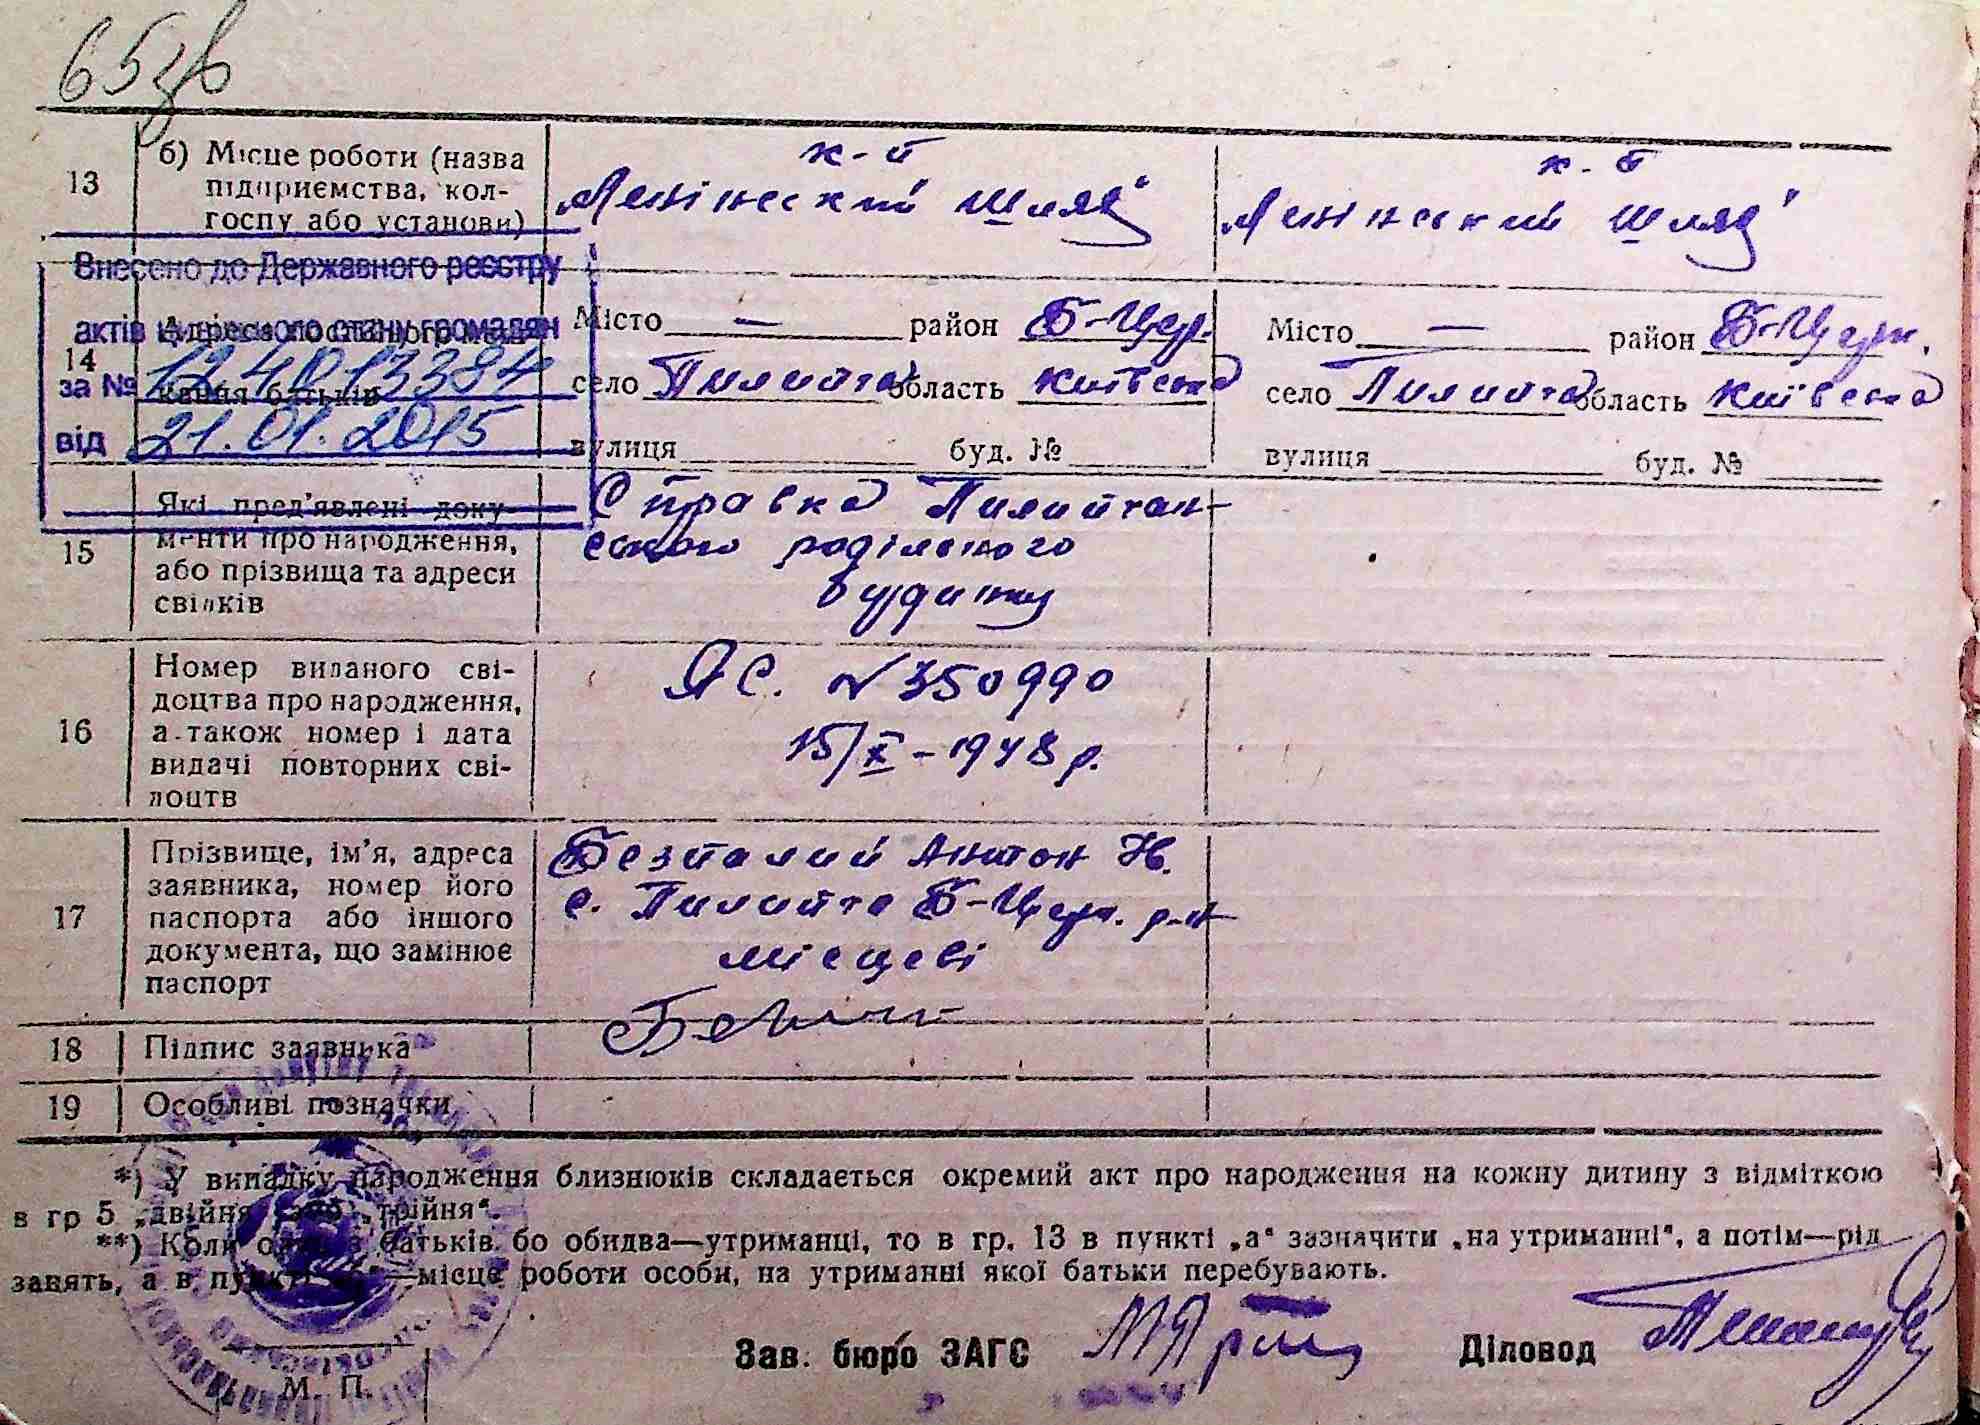 65зв
13 б) Місце роботи (назва підприємства, колгоспу або установи)
к-п
„Ленінський шлях“
к-п
„Ленінський шлях“
Внесено до Державного реєстру
актів цивільного стану громадян
за № 124013384
від 21.01.2015
14 Адреса постійного
кання батьків
Місто — район Б-Церк.
село Пилипча область Київська
вулиця буд. №
Місто — район Б-Церк.
село Пилипча область Київська
вулиця буд. №
15 Які пред'явлені доку-
менти про народження,
або прізвища та адреси
свідків
Справка Пилипчан-
ського родільного
будинку
16 Номер виданого сві-
доцтва про народження,
а також номер і дата
видачі повторних сві-
доцтв
ЯС. № 350990
15/X – 1948 р.
17 Прізвище, ім'я, адреса
заявника, номер його
паспорта або іншого
документа, що замінює
паспорт
Безпалий Антон Н.
с. Пилипча Б-Церк. р-н
місцеві
18 Підпис заявника
19 Особливі позначки
*) У випадку народження близнюків складається окремий акт про народження на кожну дитину з відміткою
в гр 5 „двійня“ або „трійня“.
**) Коли один з батьків, бо обидва—утриманці, то в гр. 13 в пункті „а“ зазначити „на утриманні“, а потім—рід
занять, а в пункті „б“—місце роботи особи, на утриманні якої батьки перебувають.
Зав. бюро ЗАГС
Діловод
М. П.